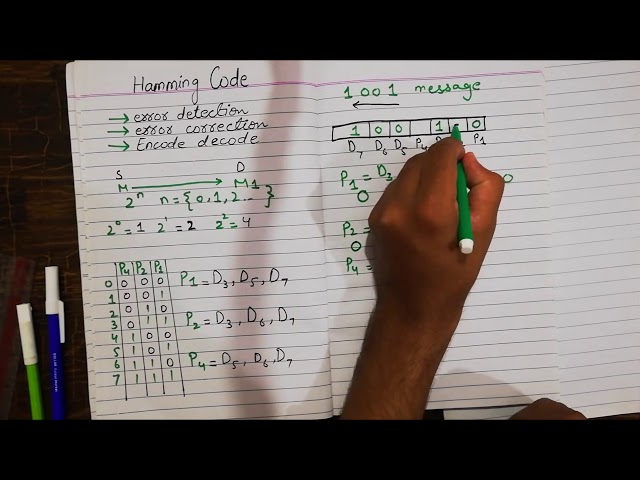 Hamming Code
→ error detection
→ error correction
→ Encode decode
S D
M → M1
2ⁿ n = {0,1,2...}
2⁰=1 2¹=2 2²=4
P4 P2 P1
0 0 0 0
1 0 0 1
2 0 1 0
3 0 1 1
4 1 0 0
5 1 0 1
6 1 1 0
7 1 1 1
P1 = D3, D5, D7
P2 = D3, D6, D7
P4 = D5, D6, D7
1 0 0 1 message
1 0 0 1 0
D7 D6 D5 P4 P1
P1 = D3
0 0
P2 =
0
P4 =